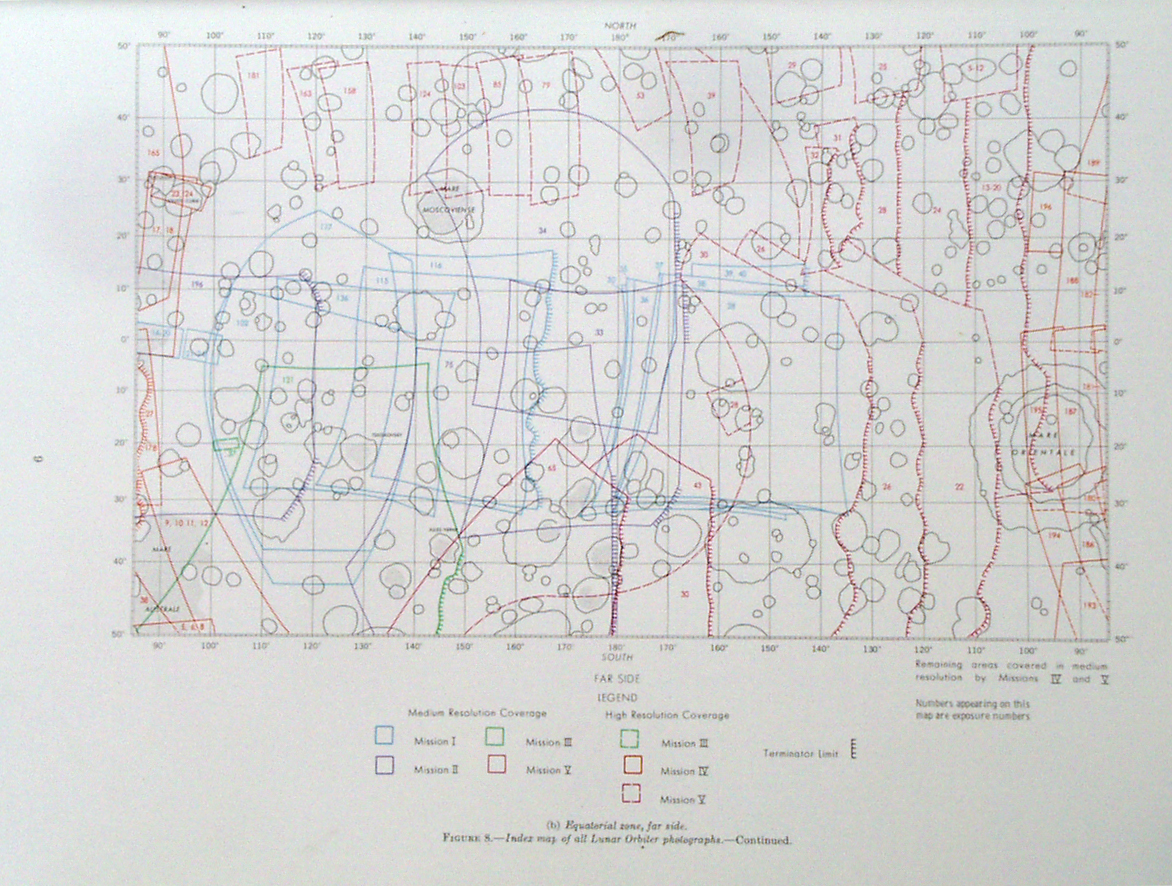 NORTH
90° 100° 110° 120° 130° 140° 150° 160° 170° 180° 170° 160° 150° 140° 130° 120° 110° 100° 90°
50° 50°
181 163 158 124 103 85 79 53 39 29 25 5-12
40° 40°
165 31 32 189
30° 30°
MARE
MOSCOVIENSE
17, 18 34 28 24 13-20 196
20° 20°
116 30 26
196 115 136 39, 40 188 182
10° 10°
102 36 28
0° 33 0°
75
121
10° 10°
27 28 195 187
MARE
20° 20°
178 ORIENTALE
65 43 26 22
30° 30°
9, 10, 11, 12 194 186
MARE
40° 40°
30 193
AUSTRALE
50° 50°
90° 100° 110° 120° 130° 140° 150° 160° 170° 180° 170° 160° 150° 140° 130° 120° 110° 100° 90°
SOUTH
FAR SIDE
Remaining areas covered in medium
resolution by Missions IV and V
Numbers appearing on this
map are exposure numbers
LEGEND
Medium Resolution Coverage
Mission I
Mission III
Mission II
Mission V
High Resolution Coverage
Mission III
Mission IV
Mission V
Terminator Limit
(b) Equatorial zone, far side.
FIGURE 8.—Index map of all Lunar Orbiter photographs.—Continued.